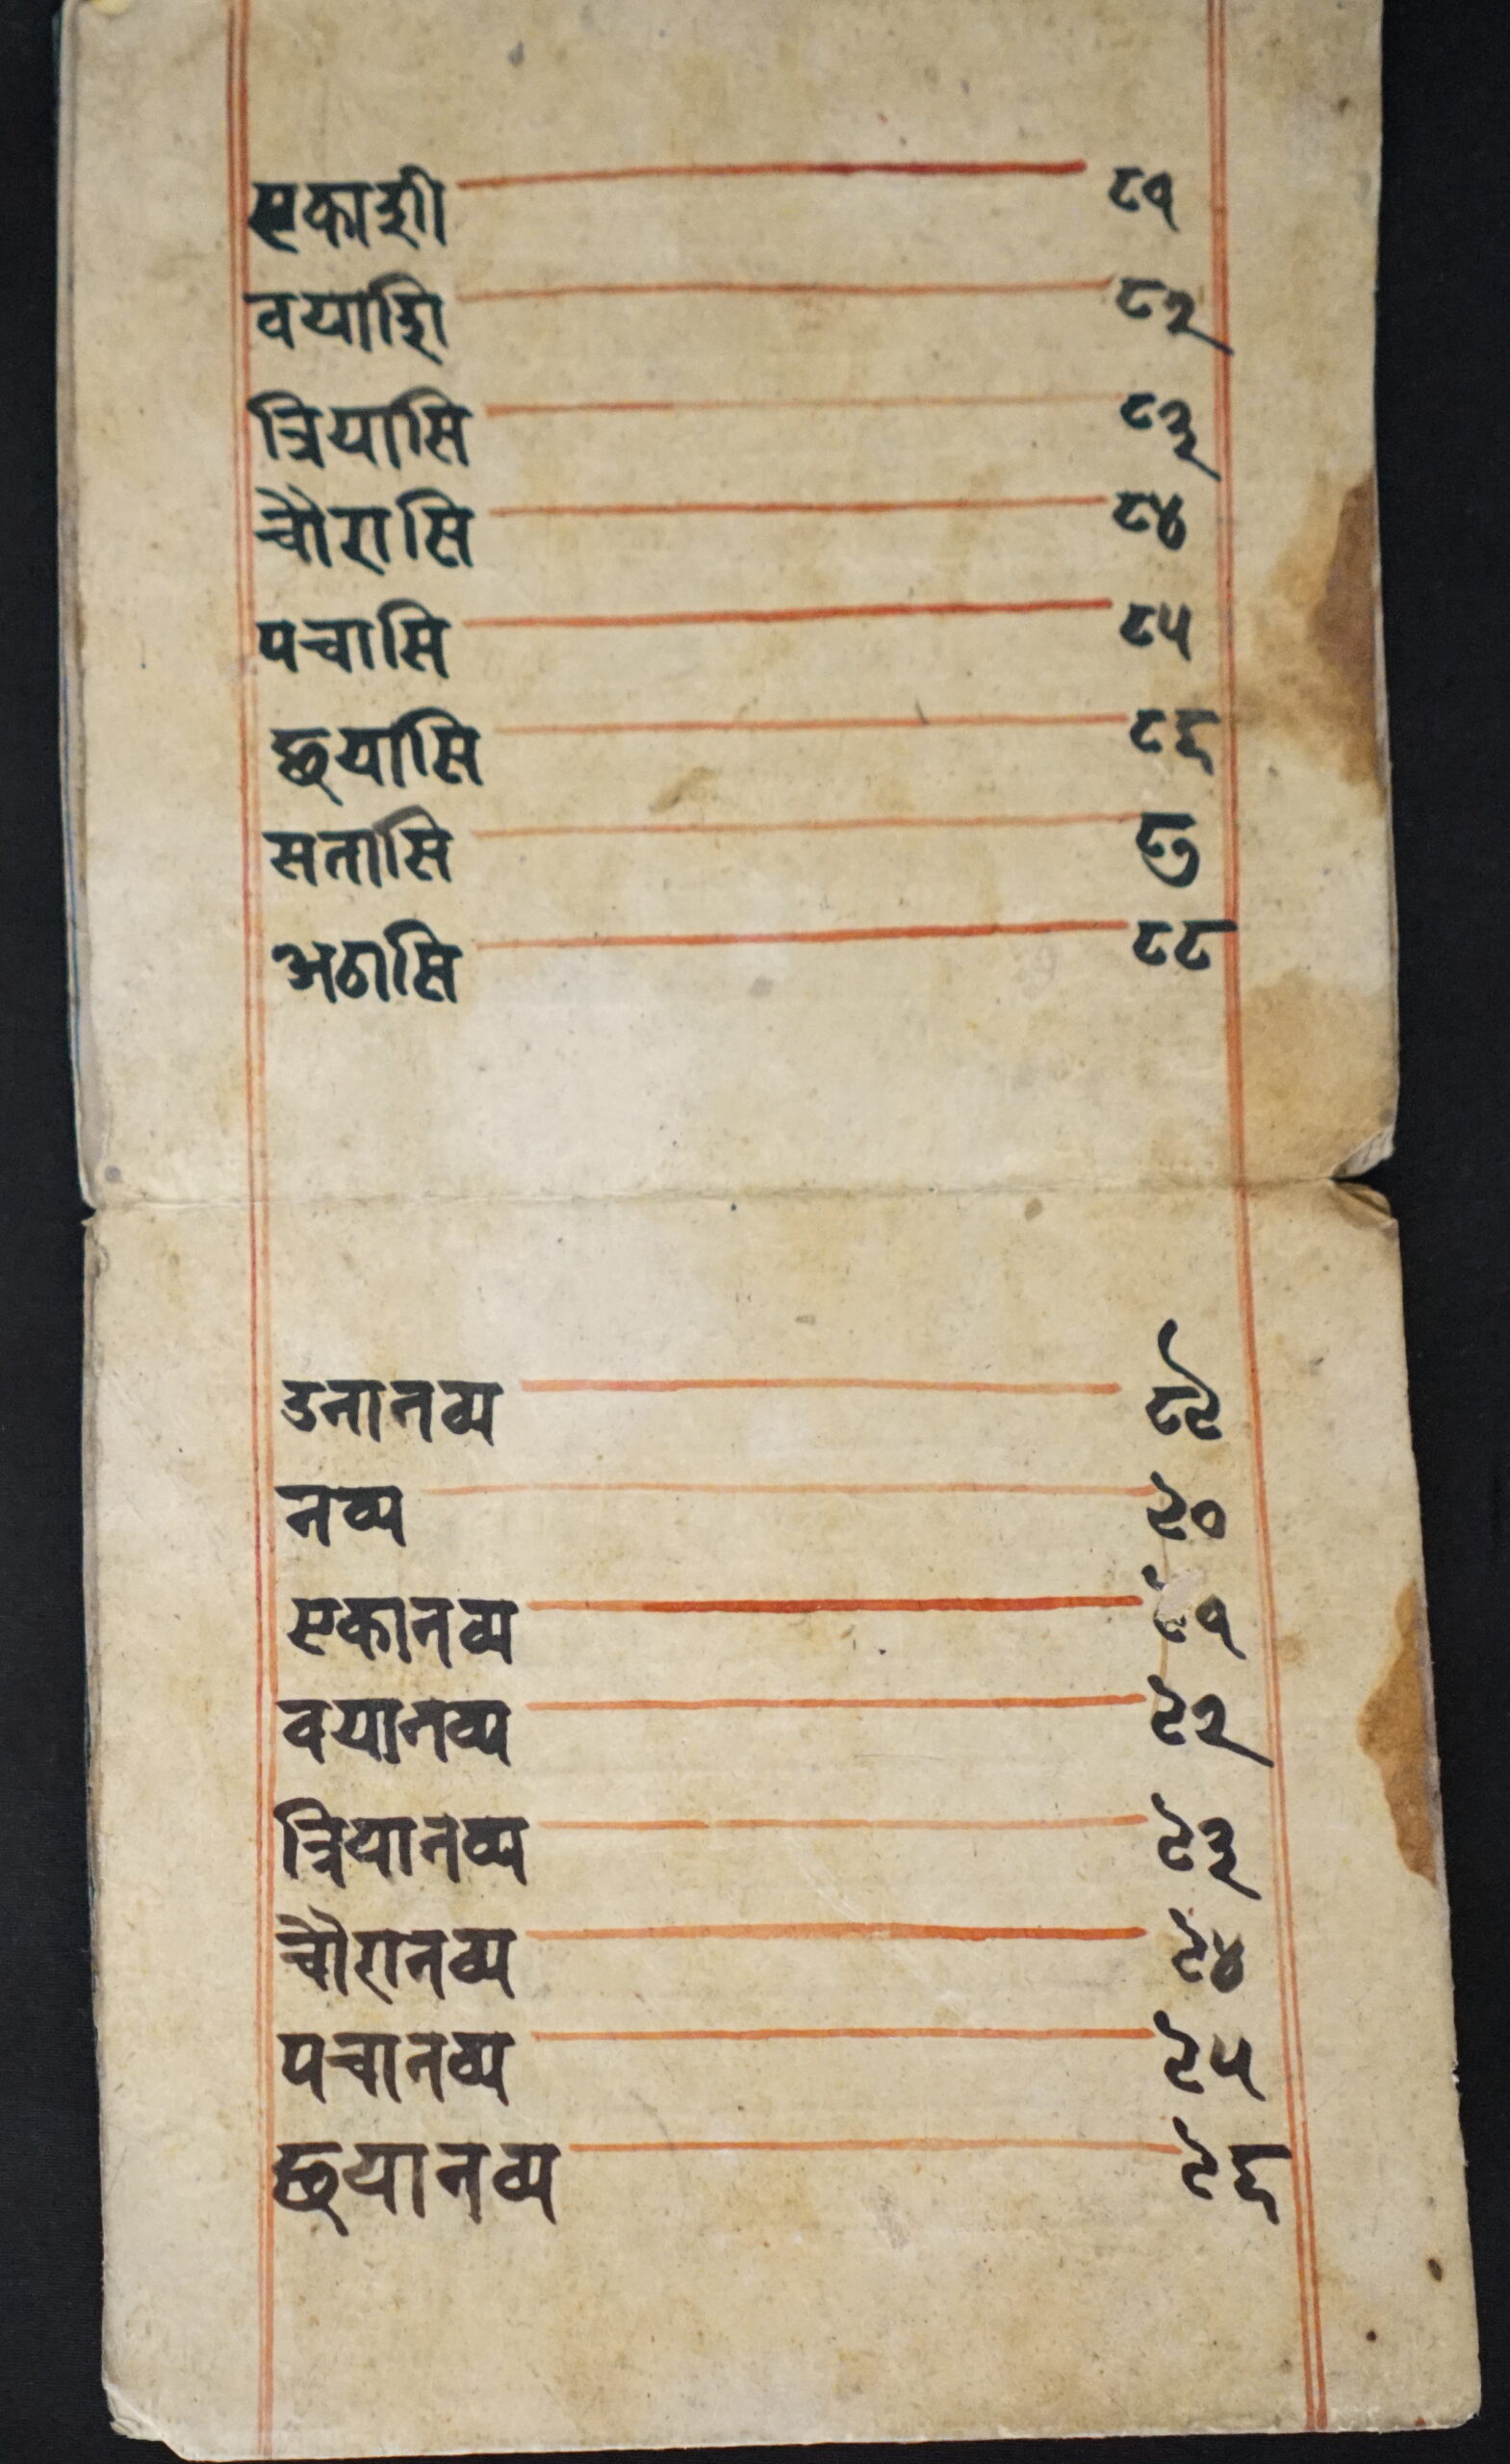 एकाशी ८१
वयाशि ८२
त्रियासि ८३
चौरासि ८४
पचासि ८५
छ्यासि ८६
सतासि ८७
अठासि ८८
उनानव्य ८९
नव्य ९०
एकानव्य ९१
वयानव्य ९२
त्रियानव्य ९३
चौरानव्य ९४
पचानव्य ९५
छ्यानव्य ९६